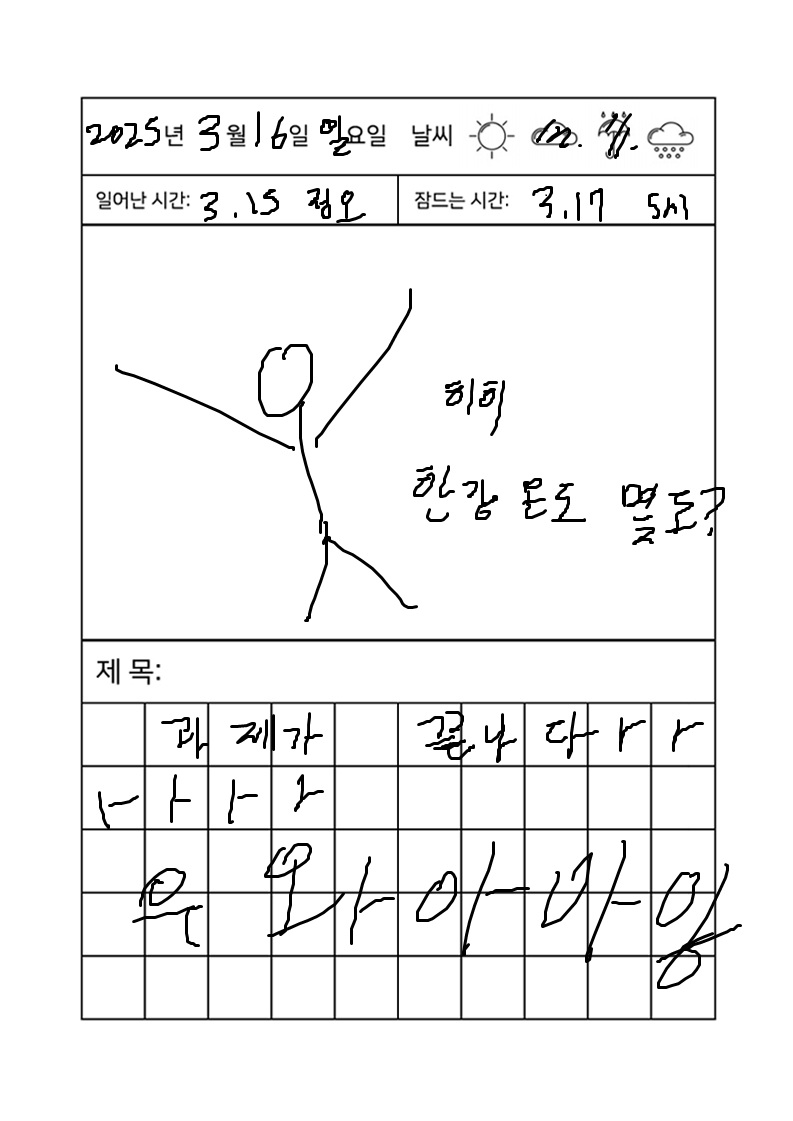 2025년 3월 16일 일요일 날씨
일어난 시간: 3.15 정오 잠드는 시간: 3.17 5시
히히
한강 온도 몇도?
제 목:
과제가 끝나다ㅏㅏ
ㅏㅏㅏㅏ
우와아아앙